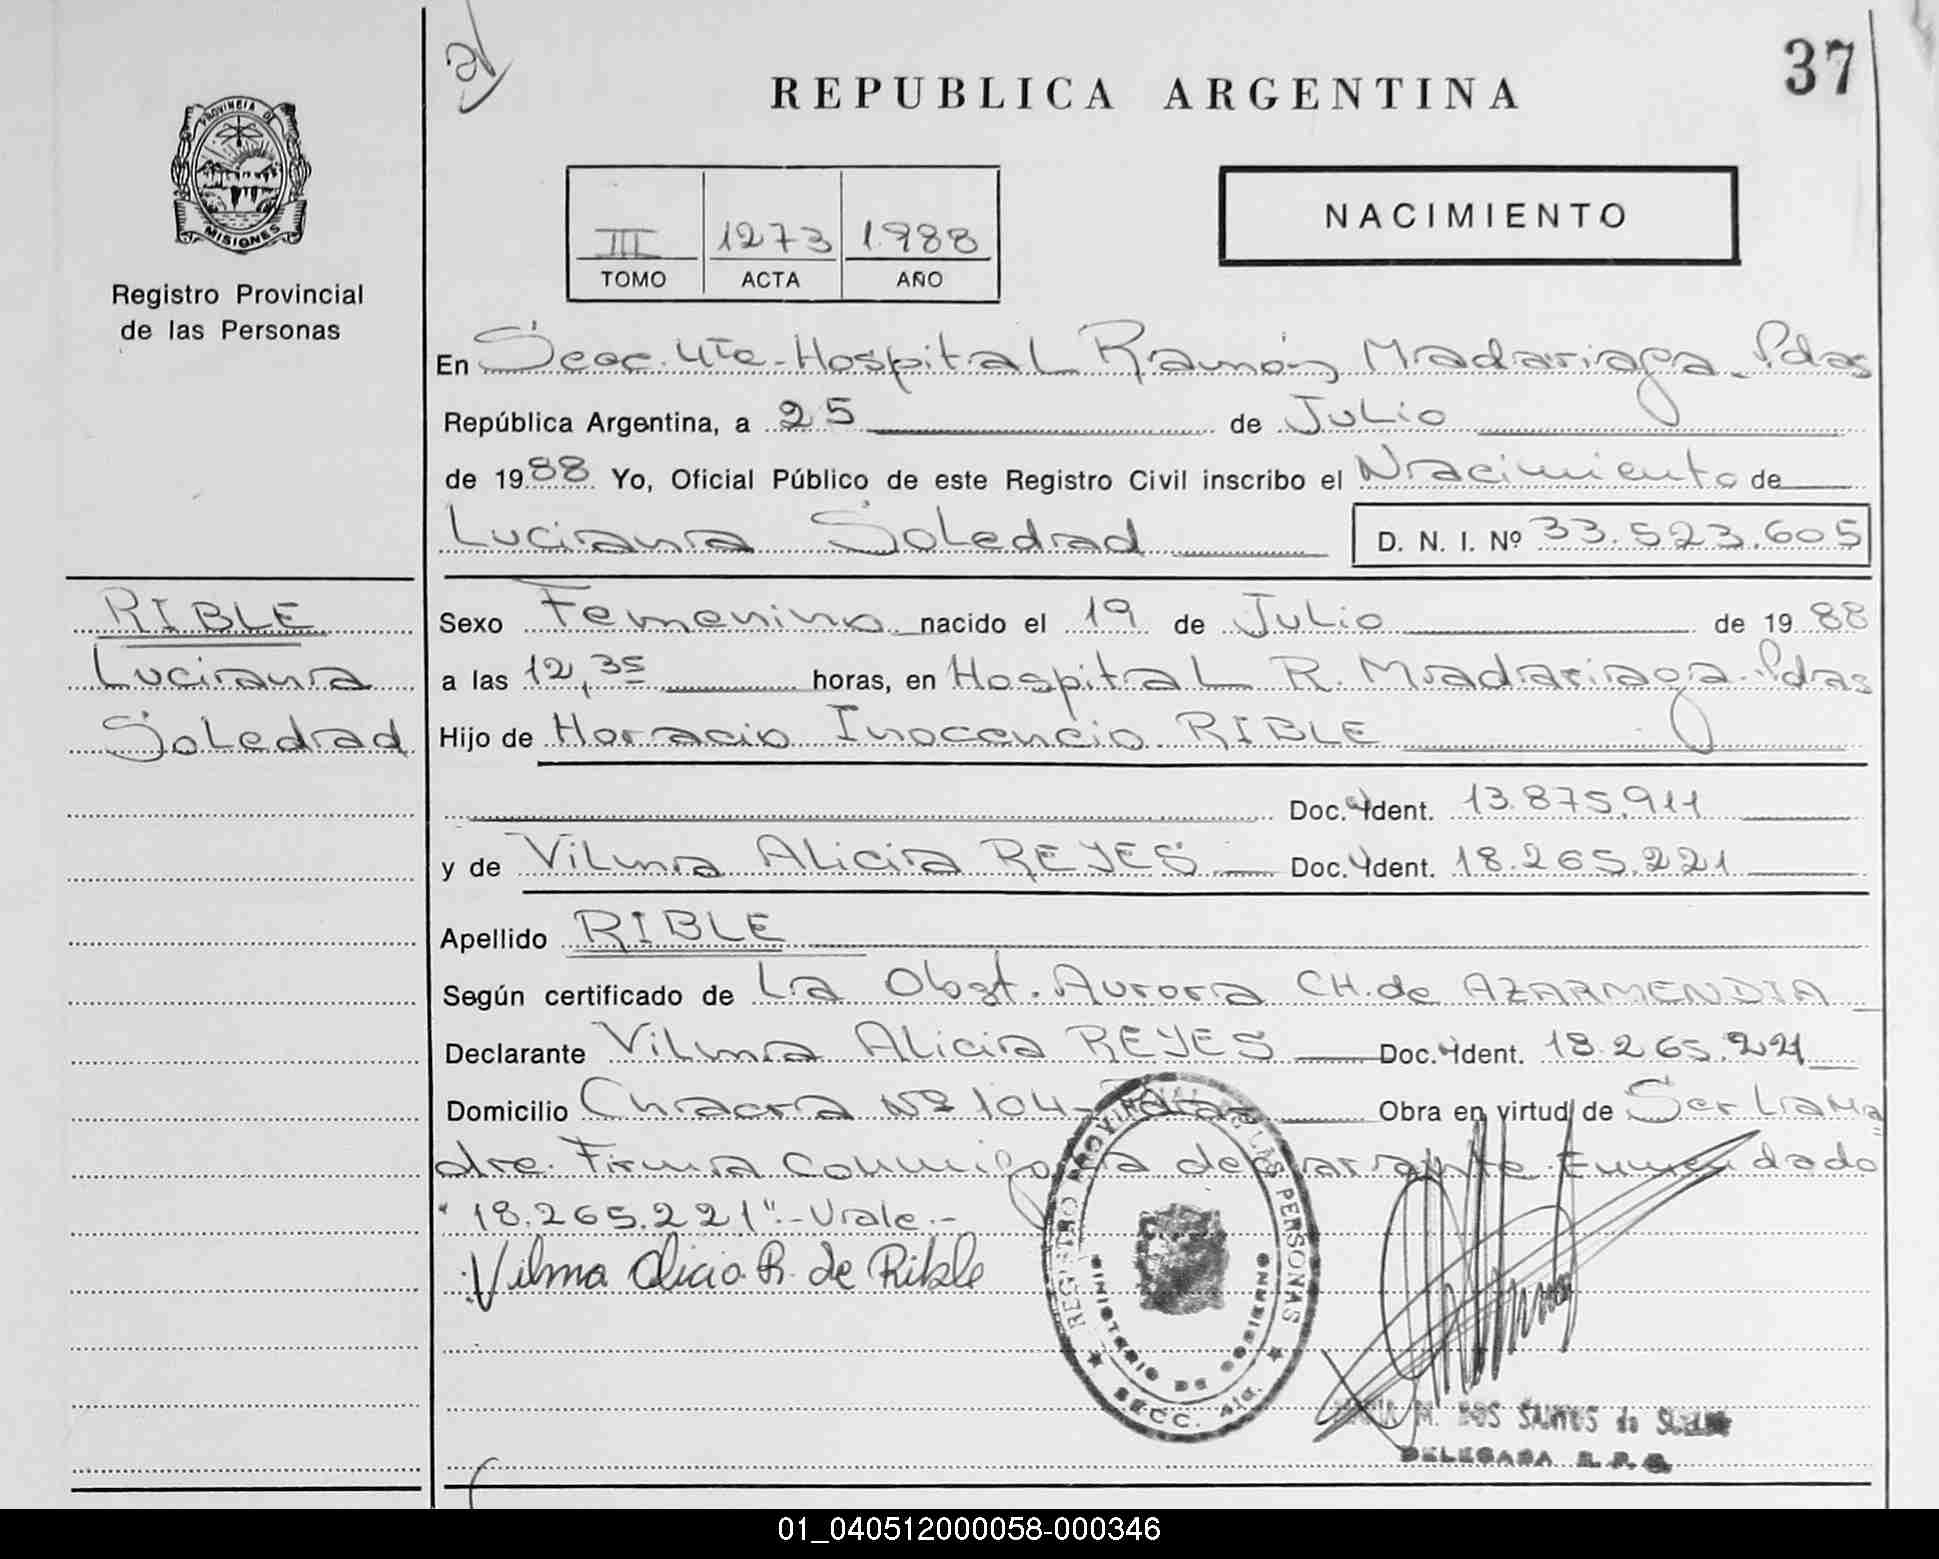 37
REPUBLICA ARGENTINA
PROVINCIA DE
MISIONES
Registro Provincial
de las Personas
NACIMIENTO
III 1273 1.988
TOMO ACTA AÑO
En Secc. 4ta - Hospital Ramón Madariaga - Pdas
República Argentina, a 25 de Julio
de 1988 Yo, Oficial Público de este Registro Civil inscribo el Nacimiento de
Luciana Soledad D. N. I. Nº 33.523.605
RIBLE
Luciana
Soledad
Sexo Femenino nacido el 19 de Julio de 1988
a las 12,35 horas, en Hospital R. Madariaga - Pdas
Hijo de Horacio Inocencio RIBLE
Doc. Ident. 13.875.911
y de Vilma Alicia REYES Doc. Ident. 18.265.221
Apellido RIBLE
Según certificado de La Obst. Aurora CH. de AZARMENDIA
Declarante Vilma Alicia REYES Doc. Ident. 18.265.221
Domicilio Chacra Nº 104 - Obra en virtud de Ser La Ma
dre. Firma Conmigo la declarante. Enmendado
"18.265.221" - Vale.-
Vilma Alicia R. de Rible
REGISTRO PROVINCIAL DE LAS PERSONAS
MINISTERIO DE GOBIERNO
SECC. 4ta.
M. DOS SANTOS de
DELEGADA R. P. P.
01_040512000058-000346